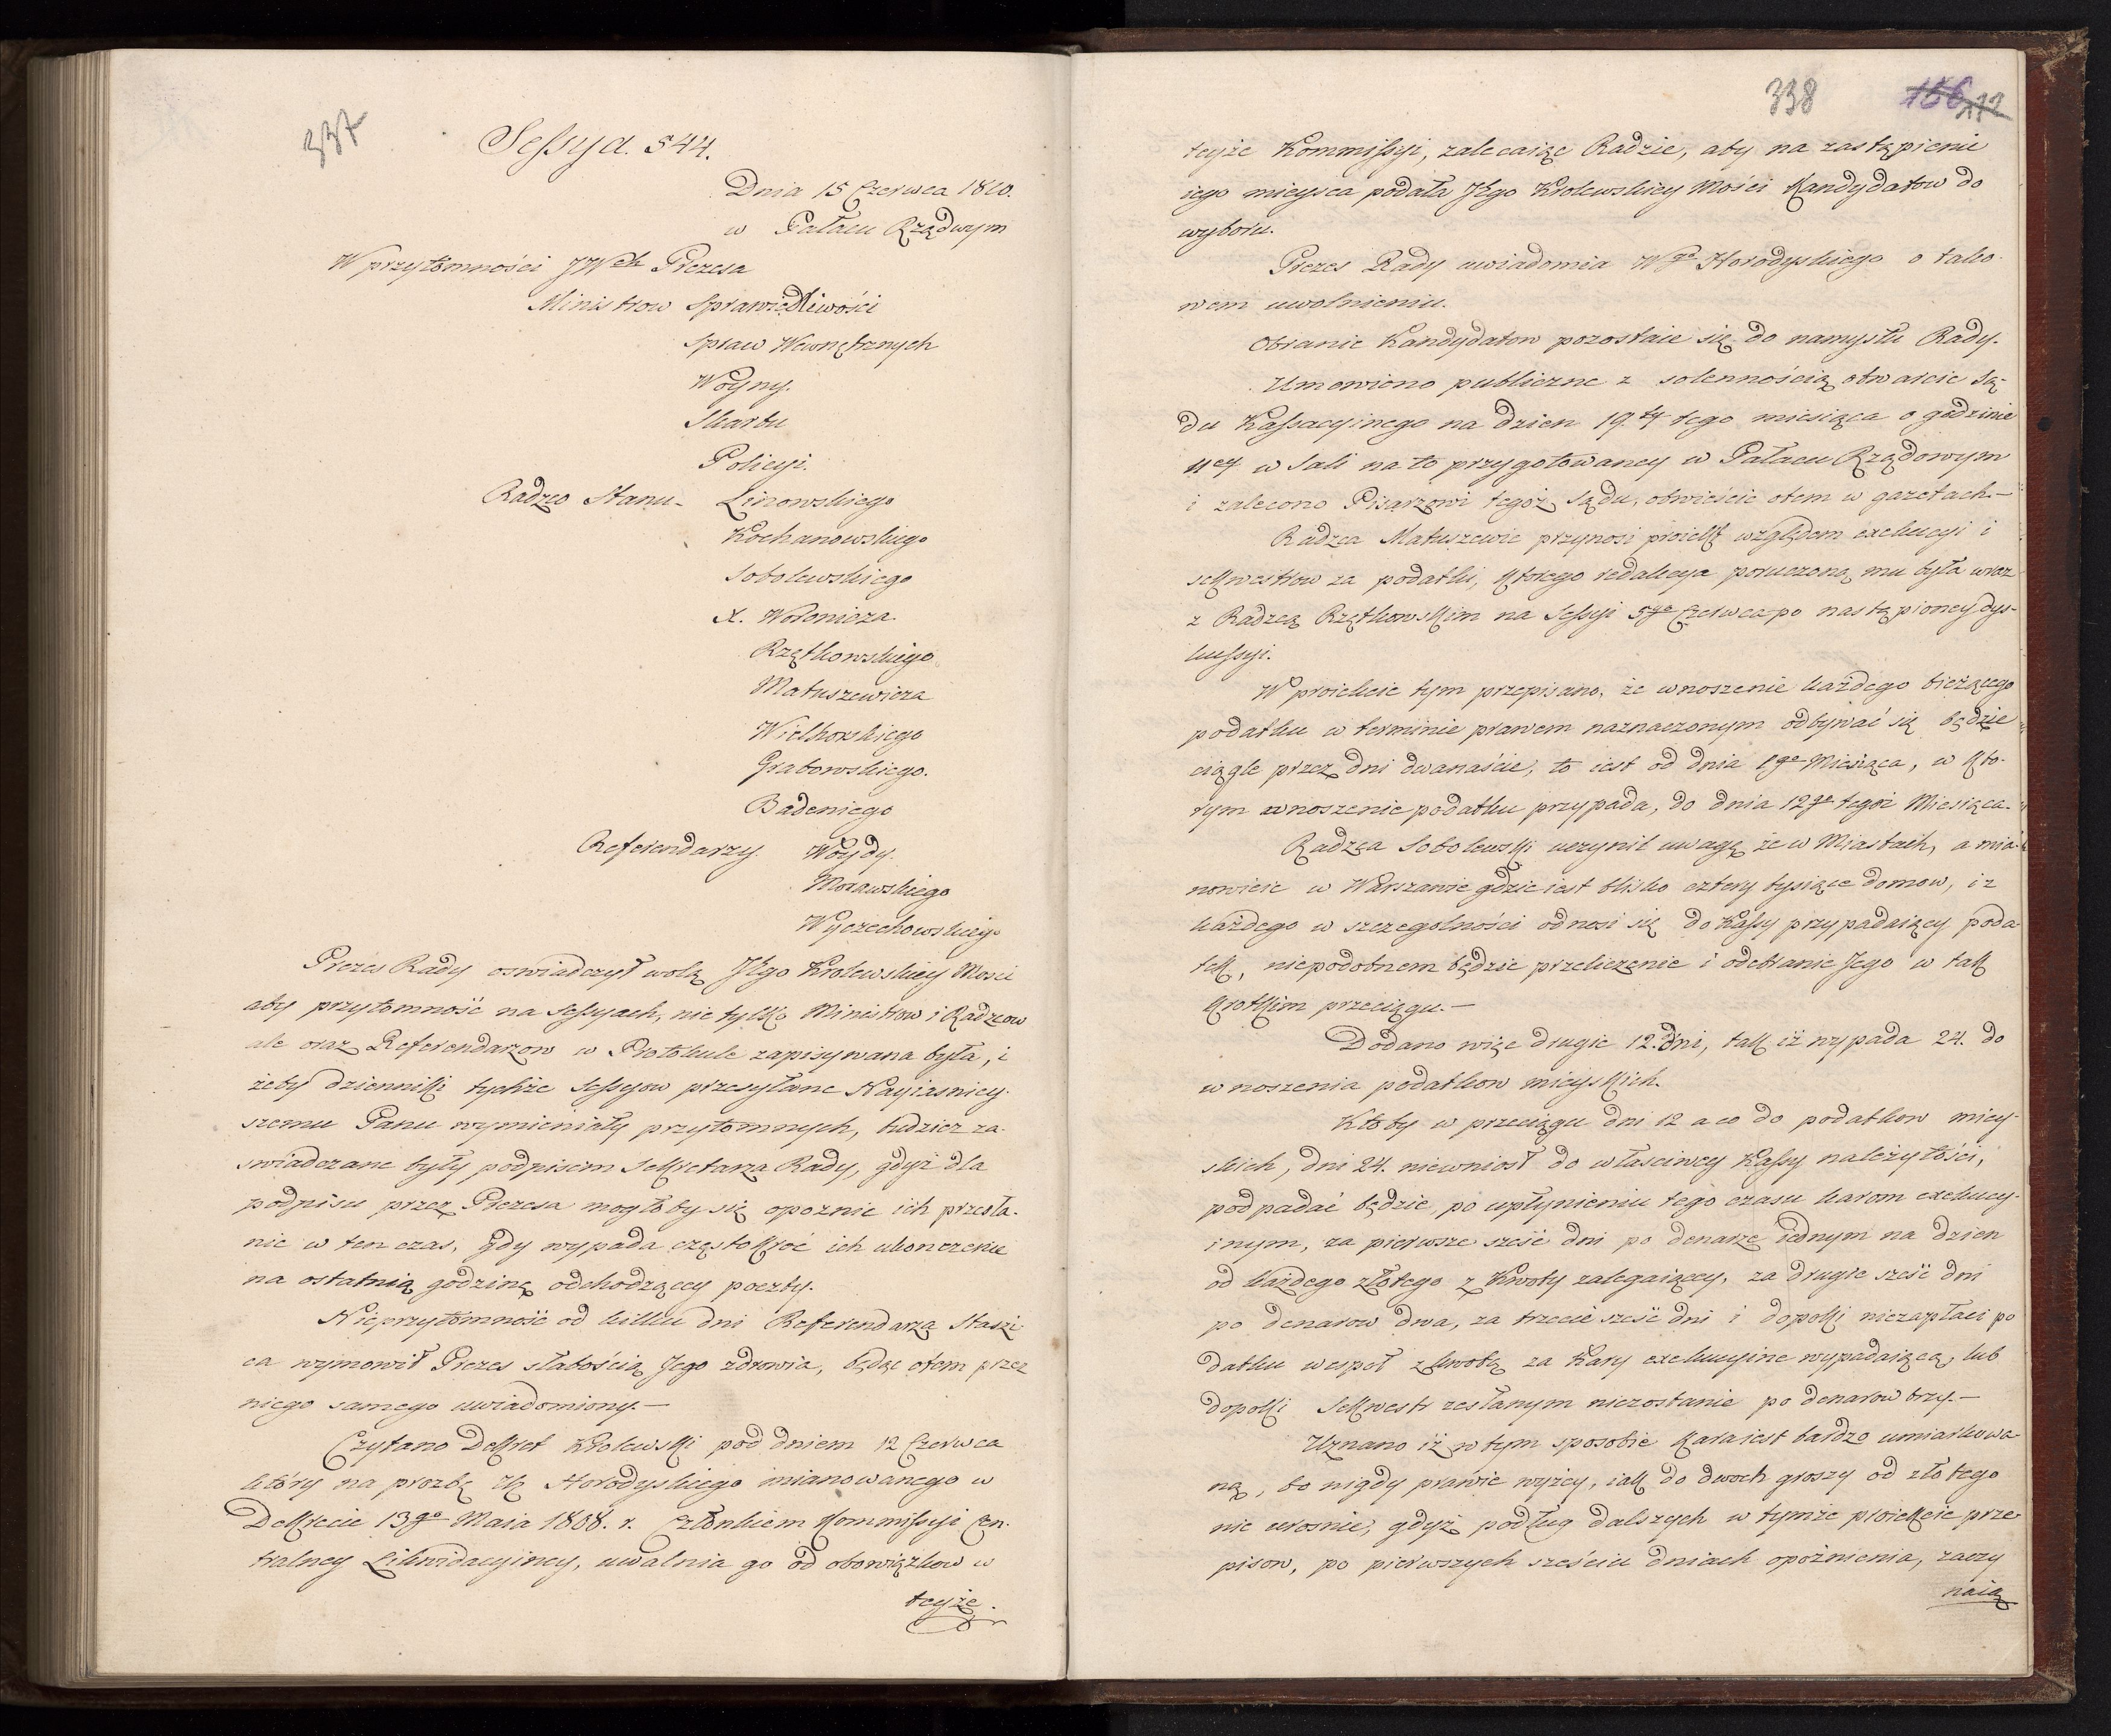 337
Sessya. 544.
Dnia 15 Czerwca 1810.
w Pałacu Rządwym
W przytomności JWch Prezesa
Ministrow Sprawiedliwości
Spraw Wewnętrznych
Woyny.
Skarbu
Policyi.
Radzco Stanu - Linowskiego
Kochanowskiego
Sobolewskiego
X. Woronicza.
Rzętkowskiego
Matuszewicza
Wielhorskiego
Grabowskiego.
Badeniego
Referendarzy. Woydy.
Morawskiego
Wyczechowskiego
Prezes Rady oswiadczył wolą JKgo Krolewskiey Mosci
aby przytomność na Sessyach, nie tylko Ministrow i Radzcow
ale oraz Referendarzow w Protokule zapisywana była, i
żeby dzienniki tychże Sessyow przesyłane Nayiasniey-
szemu Panu wymieniały przytomnych, tudzież za-
swiadczane były podpisem Sekretarza Rady, gdyż dla
podpisu przez Prezesa mogłoby się opoznic ich przesła-
nie w ten czas, gdy wypada częstokroć ich ukonczenie
na ostatnią godzinę odchodzącey poczty.
Nieprzytomność od kilku dni Referendarza Staszi-
ca wymowił Prezes słabością Jego zdrowia, będąc otem przez
niego samego uwiadomiony.—
Czytano Dekret Krolewski pod dniem 12 Czerwca
który na prozbę Horodyskiego mianowanego w
Dekrecie 13go Maia 1808. r. Członkiem Kommissyi Cen-
tralney Likwidacyiney, uwalnia go od obowiązkow w
teyże.
338 156 172
teyże Kommissyi, zalecaiąc Radzie, aby na zastąpienie
iego mieysca podała JKgo Krolewskiey Mości Kandydatow do
wyboru.
Prezes Rady uwiadomia Wgo Horodyskiego o tako-
wem uwolnieniu.
Obranie Kandydatow pozostaie się do namysłu Rady.
Umowiono publiczne z solennością otwarcie Są-
du Kassacyinego na dzien 19ty tego miesiąca o godzinie
11ey w Sali na to przygotowaney w Pałacu Rządowym
i zalecono Pisarzowi tegoż Sądu, obwieście otem w gazetach.—
Radzca Matuszewic przynosi proiekt względem exekucyi i
sekwestrow za podatki, którego redakcya poruczoną mu była wraz
z Radzcą Rzętkowskim na Sessyi 5go Czerwca po nastąpioney dys-
kussyi.
W proiekcie tym przepisano, że wnoszenie każdego bieżącego
podatku w terminie prawem naznaczonym odbywać się będzie
ciągle przez dni dwanaście, to iest od dnia 1go Miesiąca, w kto-
rym wnoszenie podatku przypada, do dnia 12go tegoż Miesiąca.
Radzca Sobolewski uczynił uwagę że w Miastach, a mia-
nowicie w Warszawie gdzie iest blisko cztery tysiące domow, i z
każdego w szczegolności odnosi się do Kassy przypadaiący poda-
tek, niepodobnem będzie przeliczenie i odebranie Jego w tak
krotkim przeciągu.—
Dodano więc drugie 12. dni, tak iż wypada 24. do
wnoszenia podatkow mieyskich.
Ktoby w przeciągu dni 12 a co do podatkow miey-
skich, dni 24. niewniosł do właściwey Kassy należytości,
podpadać będzie, po upłynieniu tego czasu karom exekucy-
inym, za pierwsze sześć dni po denarze iednym na dzien
od każdego złotego z kwoty zalegaiącey, za drugie sześć dni
po denarow dwa, za trzecie sześć dni i dopoki niezapłaci po
datku wespoł z kwotą za kary exekucyine wypadaiącą, lub
dopoki Sekwestr zesłanym niezostanie po denarow trzy.—
Uznano iż w tym sposobie kara iest bardzo umiarkowa-
ną, bo nigdy prawie wyżey, iak do dwoch groszy od złotego
nie urosnie, gdyż podług dalszych w tymże proiekcie prze-
pisow, po pierwszych sześciu dniach opoźnienia, zaczy
naią